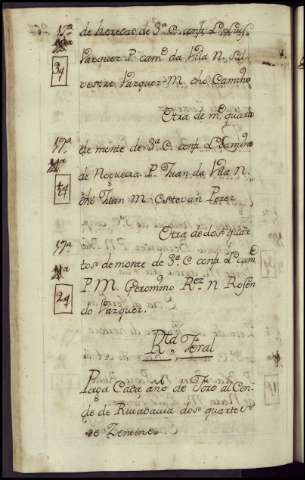 17ª de herecas de 3ª C. conf. L.
Vazquez P. camº da Vila N. Sil
34 vestre Vazquez M. dho Camino
Otra de mº quarto
17ª de monte de 3ª C. conf. L. Camino
de Nogueira P. Juan da Vila N.
dho Juan M. Estevan Perez
Otra de dos quar
17ª tos de monte de 3ª C conf. L. camº
P. M. Geronimo Rez. N Rosen
24 do Vazquez.
Rta Foral
Paga Cada año de Foro al Con
de de Rivadavia dos quartos
de Zenteno